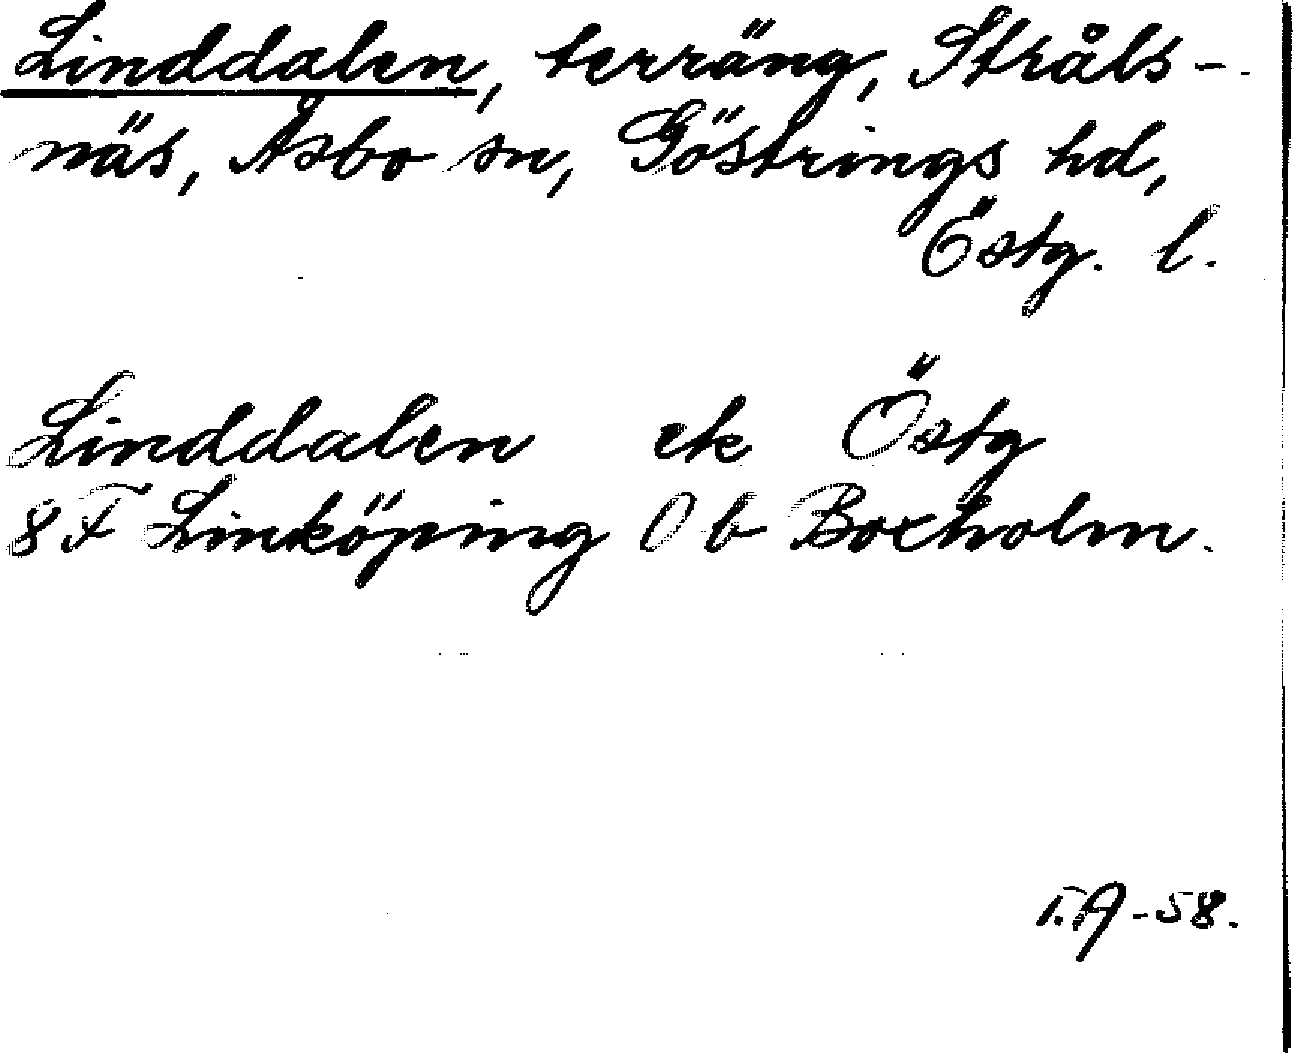 Linddalen, terräng, Stråls-
näs, Åsbo sn, Göstrings hd,
Östg. l.
Linddalen ek Östg
8 F Linköping 0 b Boxholm.
T.A-58.